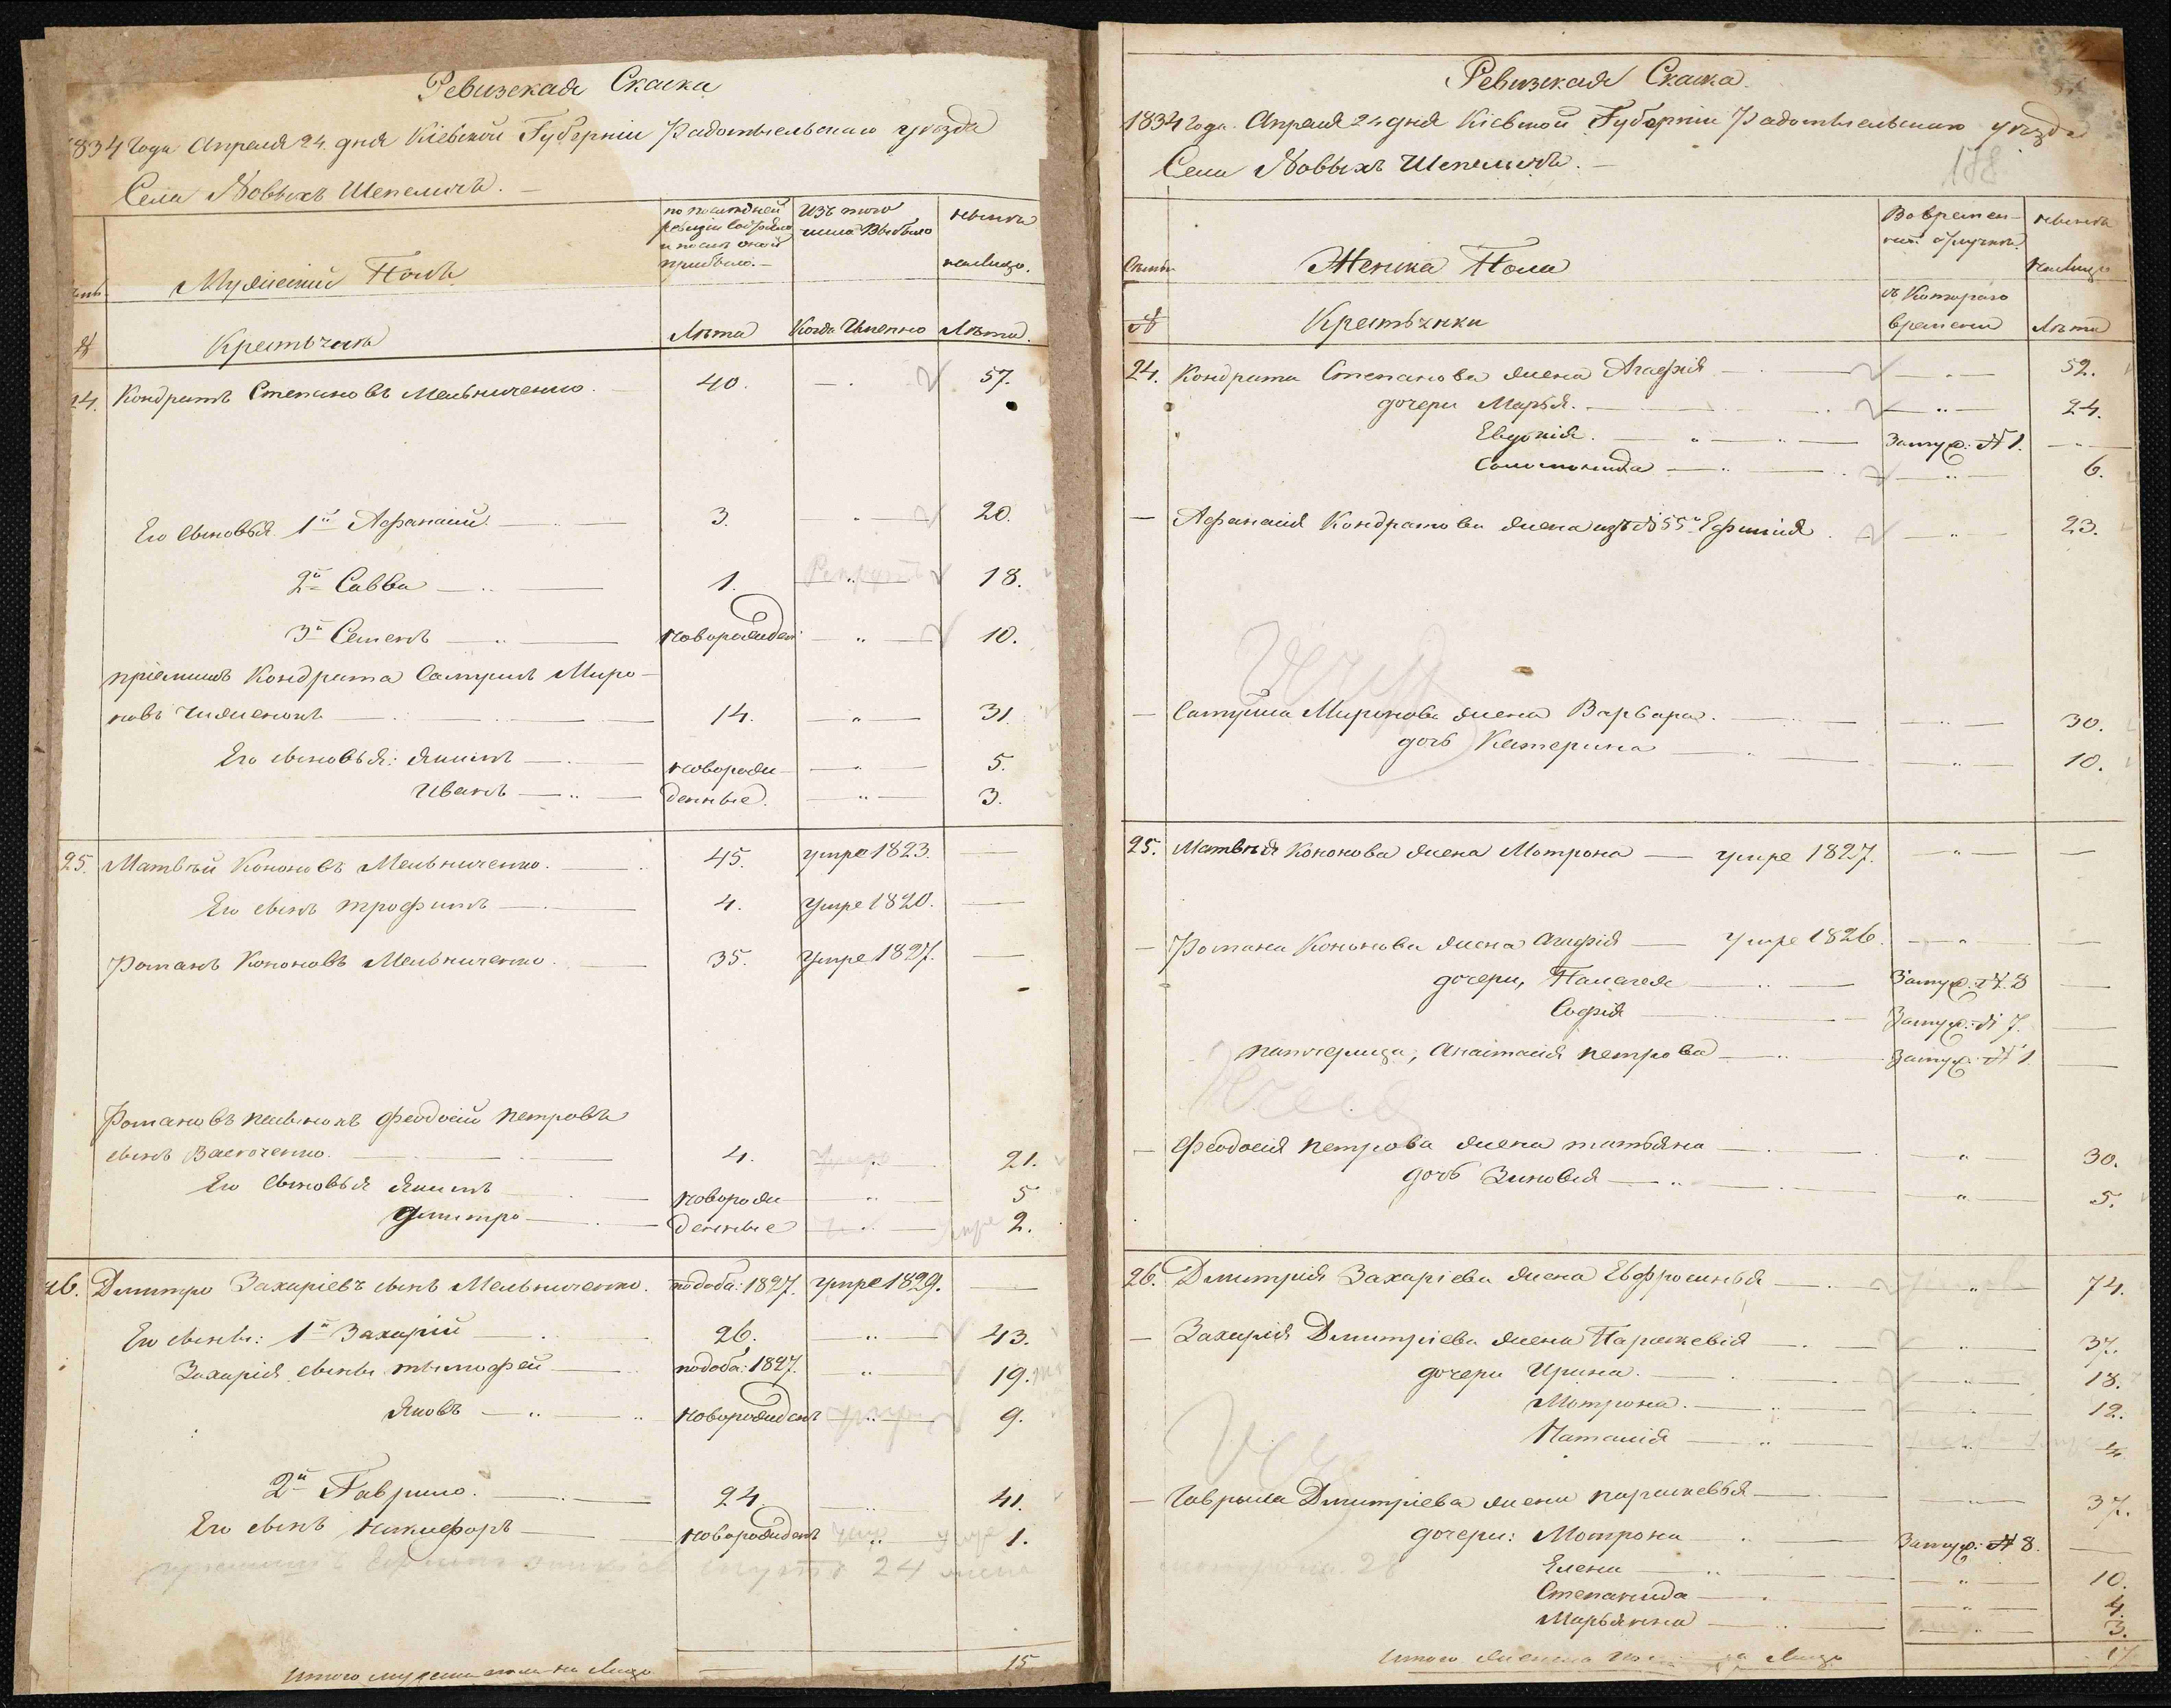 Ревизская Скаска
1834 года Апреля 24 дня Кіевской Губерніи Радомысльскаго уезда
Села Новыхъ Шепеличъ. —
по последней ревизіи состояло и после оной прибыло. —
Изъ того числа выбыло
ныне налицо.
Мужескій Полъ
№
Крестьяне
Лѣта
Когда Именно
Лѣта.
24. Кондратъ Степановъ Мельниченко. 40. — 57.
Его сыновья 1й Афанасій — 3. — 20.
2й Савва — 1. Рекрутъ 18.
3й Семенъ — новорожден: — 10.
пріемышъ Кондрата Самуилъ Миро-
новъ — 14. — 31.
Его сыновья: Якимъ — новорож- — 5.
Иванъ — денные. — 3.
25. Матвѣй Кононовъ Мельниченко. 45. умре 1823. —
Его сынъ Трофимъ — 4. умре 1820. —
Романъ Кононовъ Мельниченко. 35. умре 1827. —
Романовъ пасынокъ Феодосій Петровъ
сынъ — 4. Умре 21.
Его сыновья Якимъ новорож- — 5
Дмитро — денные — умре 2.
26. Дмитро Захаріевъ сынъ Мельниченко. подоба: 1827. умре 1829. —
Его сыны: 1й Захарій — 26. — 43.
Захарія сыны Тымофей — подоба: 1827. — 19.
Яковъ — новорожденъ — 9.
2й Гаврило. — 24 — 41.
Его сынъ Никифоръ — новорожденъ умре 1.
24
Итого мужеска пола на лицо — — 15
Ревизская Скаска.
1834 года Апреля 24 дня Кіевской Губерніи Радомысльскаго уезда
Села Новыхъ Шепеличъ. —
178
Во времен-
ной отлучкѣ.
ныне
налицо
Женска Пола
съ Котораго
времени
Лѣта
№
Крестьянки
24. Кондрата Степанова жена Агафія — — 52.
дочери Марья. — — 24.
Евдокія. — Замуж: № 1. —
Соломонида — — 6.
— Афанасія Кондратова жена изъ № 55го Ефимія — 23.
— Самуила Миронова жена Варвара. — — 30.
дочь Катерина — — 10.
25. Матвѣя Кононова жена Мотрона — умре 1827. — —
— Романа Кононова жена Агафія — умре 1826. — —
дочери, Палагея — Замуж: № 8 —
Софія — Замуж: № 7. —
патчерица, Анастасія Петрова — Замуж: № 1 —
— Феодосія Петрова жена Татьяна — — 30.
дочь Зиновія — — 5.
26. Дмитрія Захаріева жена Евфросинья — — 74.
— Захарія Дмитріева жена Параскевія — — 37.
дочери Ирина. — — 18.
Мотрона. — — 12.
Наталія — — 4
— Гаврыла Дмитріева жена Параскевья — — 37.
дочери: Мотрона — Замуж: № 8. —
28
Елена — — 10.
Степанида — — 4.
Марьянна — — 3.
Итого женска пола на лицо 17